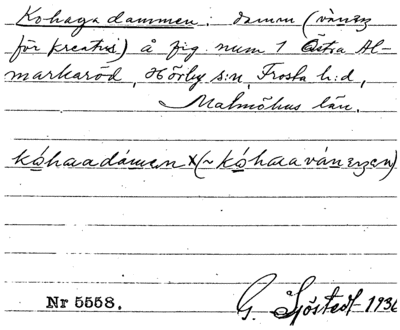 Kohagadammen: damm (vänez
för kreatur) å fig. num 1 Östra Al-
markaröd, Hörby s:n, Frosta h:d,
Malmöhus län.
kóhaadámen x(~ kóhaavánezen)
Nr 5558.
G. Sjöstedt 1936